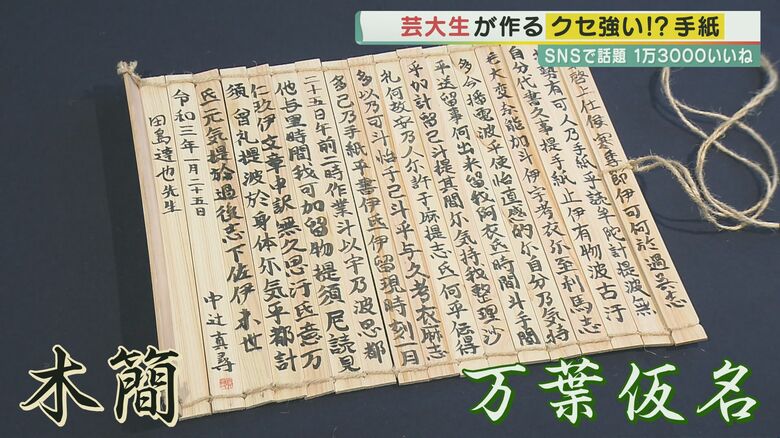 芸大生が作るクセ強い!?手紙
SNSで話題 1万3000いいね
啓上仕候寒季即伊可何於過志
勢有可人乃手紙乎読牟陀計提波無
自分代書久事提手紙止伊有物波古汙
毛大変奈能加斗伊宇考衣尓至利馬志
多今播電波乎使怡直感的尓自分乃気持
乎送留事何出来留我何衣氐時間斗手間
乎加計留己斗提其間尓気持我整理沙
礼何故安乃人尓許于麻提志氐何乎伝得
多以乃可斗怡于己斗乎与久考衣麻志
多己乃手紙乎書伊氐伊留現時刻一月
二十五日午前二時作業斗以宇乃波思都
他与里時間我可加留物提須尼読見
仁玖伊文章申訳無久思汙氐意万
須留礼提波於身体尓気乎都計
氐元気提於過後志下佐伊末世
中辻真尋
令和三年一月二十五日
田島達也先生
木簡
万葉仮名